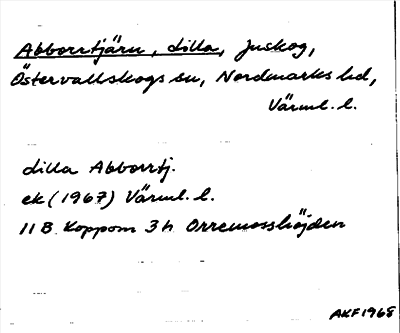 Abborrtjärn, Lilla, Juskog,
Östervallskogs sn, Nordmarks hd,
Värml. l.
Lilla Abborrtj.
ek (1967) Värml. l.
11B Koppom 3h Orremosshöjden
AKF 1968